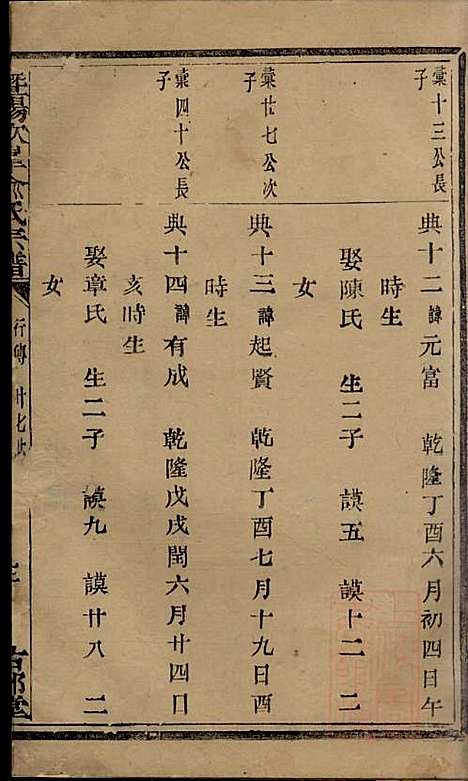 彙十三公長
子
典十二諱元富 乾隆丁酉六月初四日午
時生
娶陳氏 生二子 謨五 謨十二 二
女
彙廿七公次
子
典十三諱起賢 乾隆丁酉七月十九日酉
時生
彙四十公長
子
典十四諱有成 乾隆戊戌閏六月廿四日
亥時生
娶章氏 生二子 謨九 謨廿八 二
女
行傳 廿七